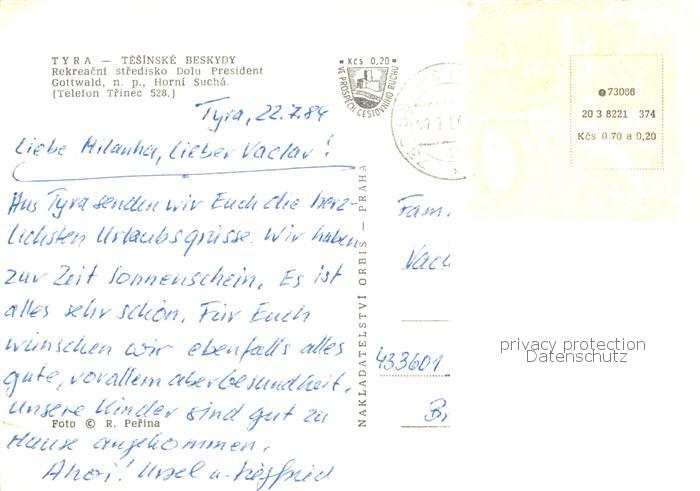 TYRA — TĚŠÍNSKÉ BESKYDY
Rekreační středisko Dolu President
Gottwald, n. p., Horní Suchá.
(Telefon Třinec 528.)
Kčs 0,20
VE PROSPĚCH CESTOVNÍHO RUCHU
73066
20 3 8221 374
Kčs 0.70 a 0,20
Tyra, 22.7.84
Liebe Milanka, Lieber Vaclav!
Aus Tyra senden wir Euch die herz-
lichsten Urlaubsgrüsse. Wir haben
zur Zeit Sonnenschein. Es ist
alles sehr schön. Für Euch
wünschen wir ebenfalls alles
gute, vor allem aber Gesundheit.
Unsere Kinder sind gut zu
Hause angekommen.
Ahoi! Ursel u. Siegfried
Foto © R. Peřina
NAKLADATELSTVÍ ORBIS — PRAHA
Fam.
Vacl
433601
Br
privacy protection
Datenschutz